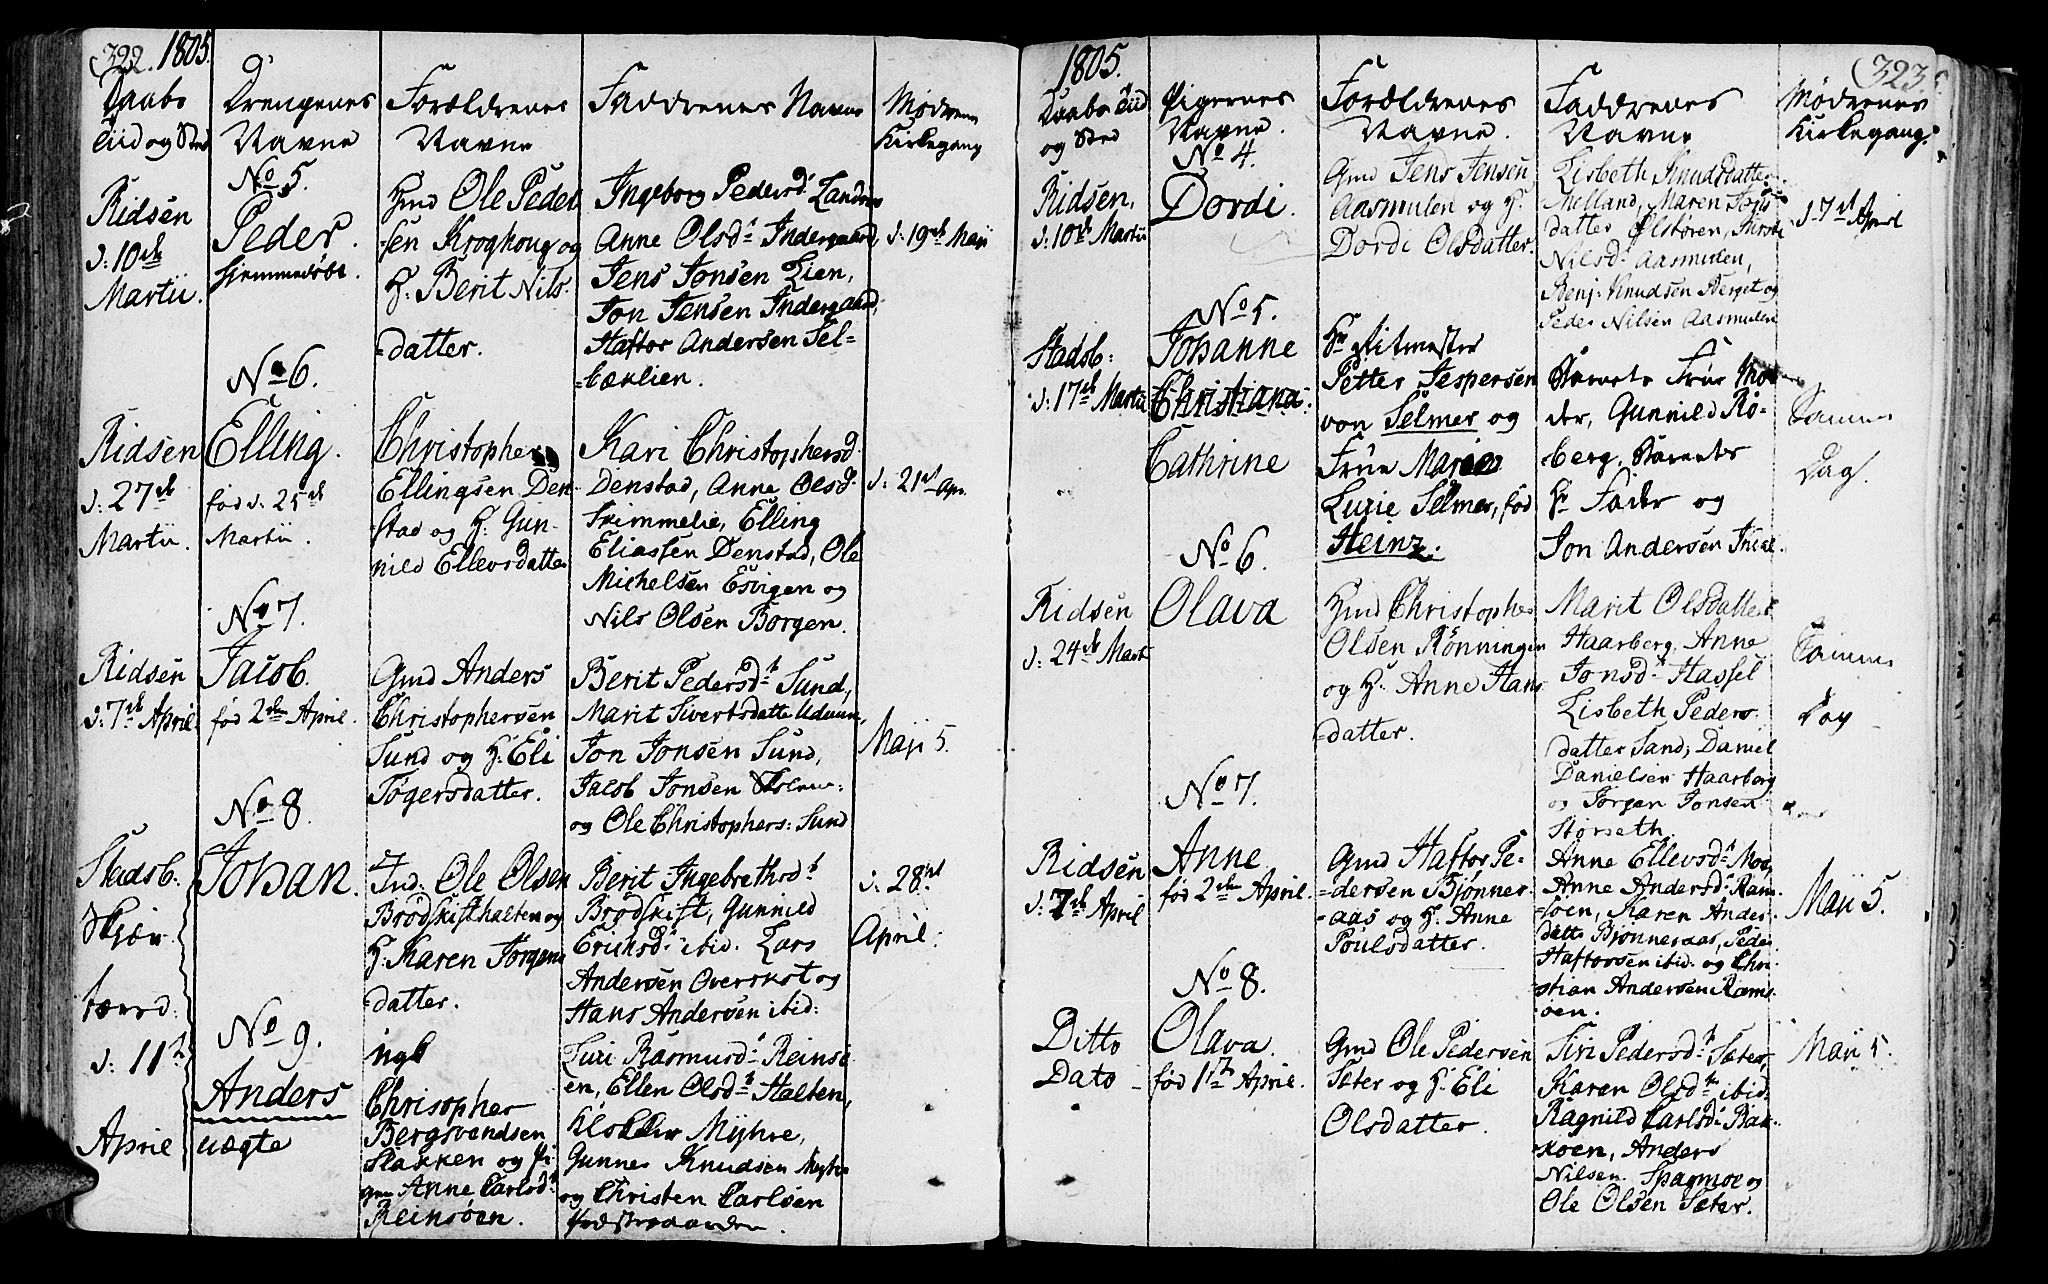 322. 1805.
Daabs
Tiid og Sted
Drengenes
Navne
Forældrenes
Navne
Faddrenes Navne
Mødrenes
Kirkegang
Ridsen
d: 10de
Martii.
No 5.
Peder.
hjemmedøbt.
Gmd Ole Peder
=sen Kroghoug og
H. Berit Nils-
=datter.
Ingeborg Pedersd:
Anne Olsdr Indergaard,
Jens Jonsen Lien,
Jon Jensen Indergaard,
Haftor Andersen Sel=
=bæklien.
d: 19de Maji
Ridsen
d: 27de
Martii.
No 6.
Elling.
fød d: 25de
Martii.
Christopher
Ellingsen Den-
=stad og H: Gun-
nild Ellevsdatter
Kari Christophersd.
Denstad, Anne Olsd.
Elling
Eliassen Denstad, Ole
Michelsen Esvigen og
Nils Olsen Borgen.
d: 21de Apr.
Ridsen
d: 7de April.
No 7.
Jacob.
fød 2den April.
Gmd Anders
Christophersen
Sund og H: Eli
Togersdatter.
Berit Pedersdr Sund,
Marit Sivertsdatter
Jon Jonsen Sund,
Jacob Jonsen
og Ole Christophers: Sund
Maji 5.
Stadsb.
Skjær
tærsd.
d: 11te
April
No 8.
Johan.
Ind: Ole Olsen
Brødskifthalten og
H. Karen Jørgens
=datter.
Berit Ingebrethsdr
Brødskift, Gunnild
Eriksdr ibid. Lars
Andersen Overskot og
Hans Andersen ibid:
d: 28de
April.
No 9.
Anders
uægte
ugl
Chrisopher
Bergsvendsen
Slakken og Pi-
gen Anne Carlsdr
Reinsøen.
Luzi Rasmusdr Reinsø
en, Ellen Olsdr Halten,
Myhre,
Gunner Knudsen Myhre
og Christen Carlsen
1805.
323.
Daabs Tiid
og Sted
Pigernes
Navne.
Forældrenes
Navne.
Faddrenes
Navne
Mødrenes
Kirkegang.
Ridsen,
d: 10de Martii
No 4.
Dordi.
Gmd Jens Jensen
Aasmulen og H.
Dordi Olsdatter.
Lisbeth Knudsdatter
Melland, Maren Jons
datter Ølstøren,
Nilsdr Aasmulen,
Benj: Knudsen Berget og
Peder Nilsen Aasmulen
d: 7de April
Stadsb:
d: 17de Martii
No 5.
Johanne
Christiana
Cathrine
Hr Ritmester
Petter Jespersen
von Selmer og
Frue Maria
Luzie Selmer, fød
Heinz.
Barnets Frue Mo-
der, Gunnild Rø-
berg, Barnets
Hr Fader og
Jon Andersen
Samme
Dag.
Ridsen
d: 24de Marti
No 6.
Olava
Gmd Christopher
Olsen Rønningen
og H: Anne Hans
=datter.
Marit Olsdatter
Haarberg, Anne
Jonsdr Hassel
Lisbeth Peders-
datter Sand, Daniel
Danielsen Haarberg
og Jørgen Jonsen
Størseth.
Samme
Dag
Ridsen
d: 7de April
No 7.
Anne
fød 2den April.
Gmd Haftor Pe-
=dersen Bjønner-
=aas og H: Anne
Poulsdatter.
Anne Ellevsdr Moa,
Anne Andersdr Ram-
=søen, Karen Anders-
datter Bjønneraas, Peder
Haftorsen ibid: og Chri-
stian Andersen Rams-
øen.
Maji 5.
Ditto
Dato
No 8.
Olava.
fød 1ste April.
Gmd Ole Pedersen
Sæter og H: Eli
Olsdatter.
Siri Pedersdr Sæter,
Karen Olsdr ibid:
Ragnild Carlsdr Bak-
køen, Anders
Nilsen Spagmoe og
Ole Olsen Sæter.
Maji 5.